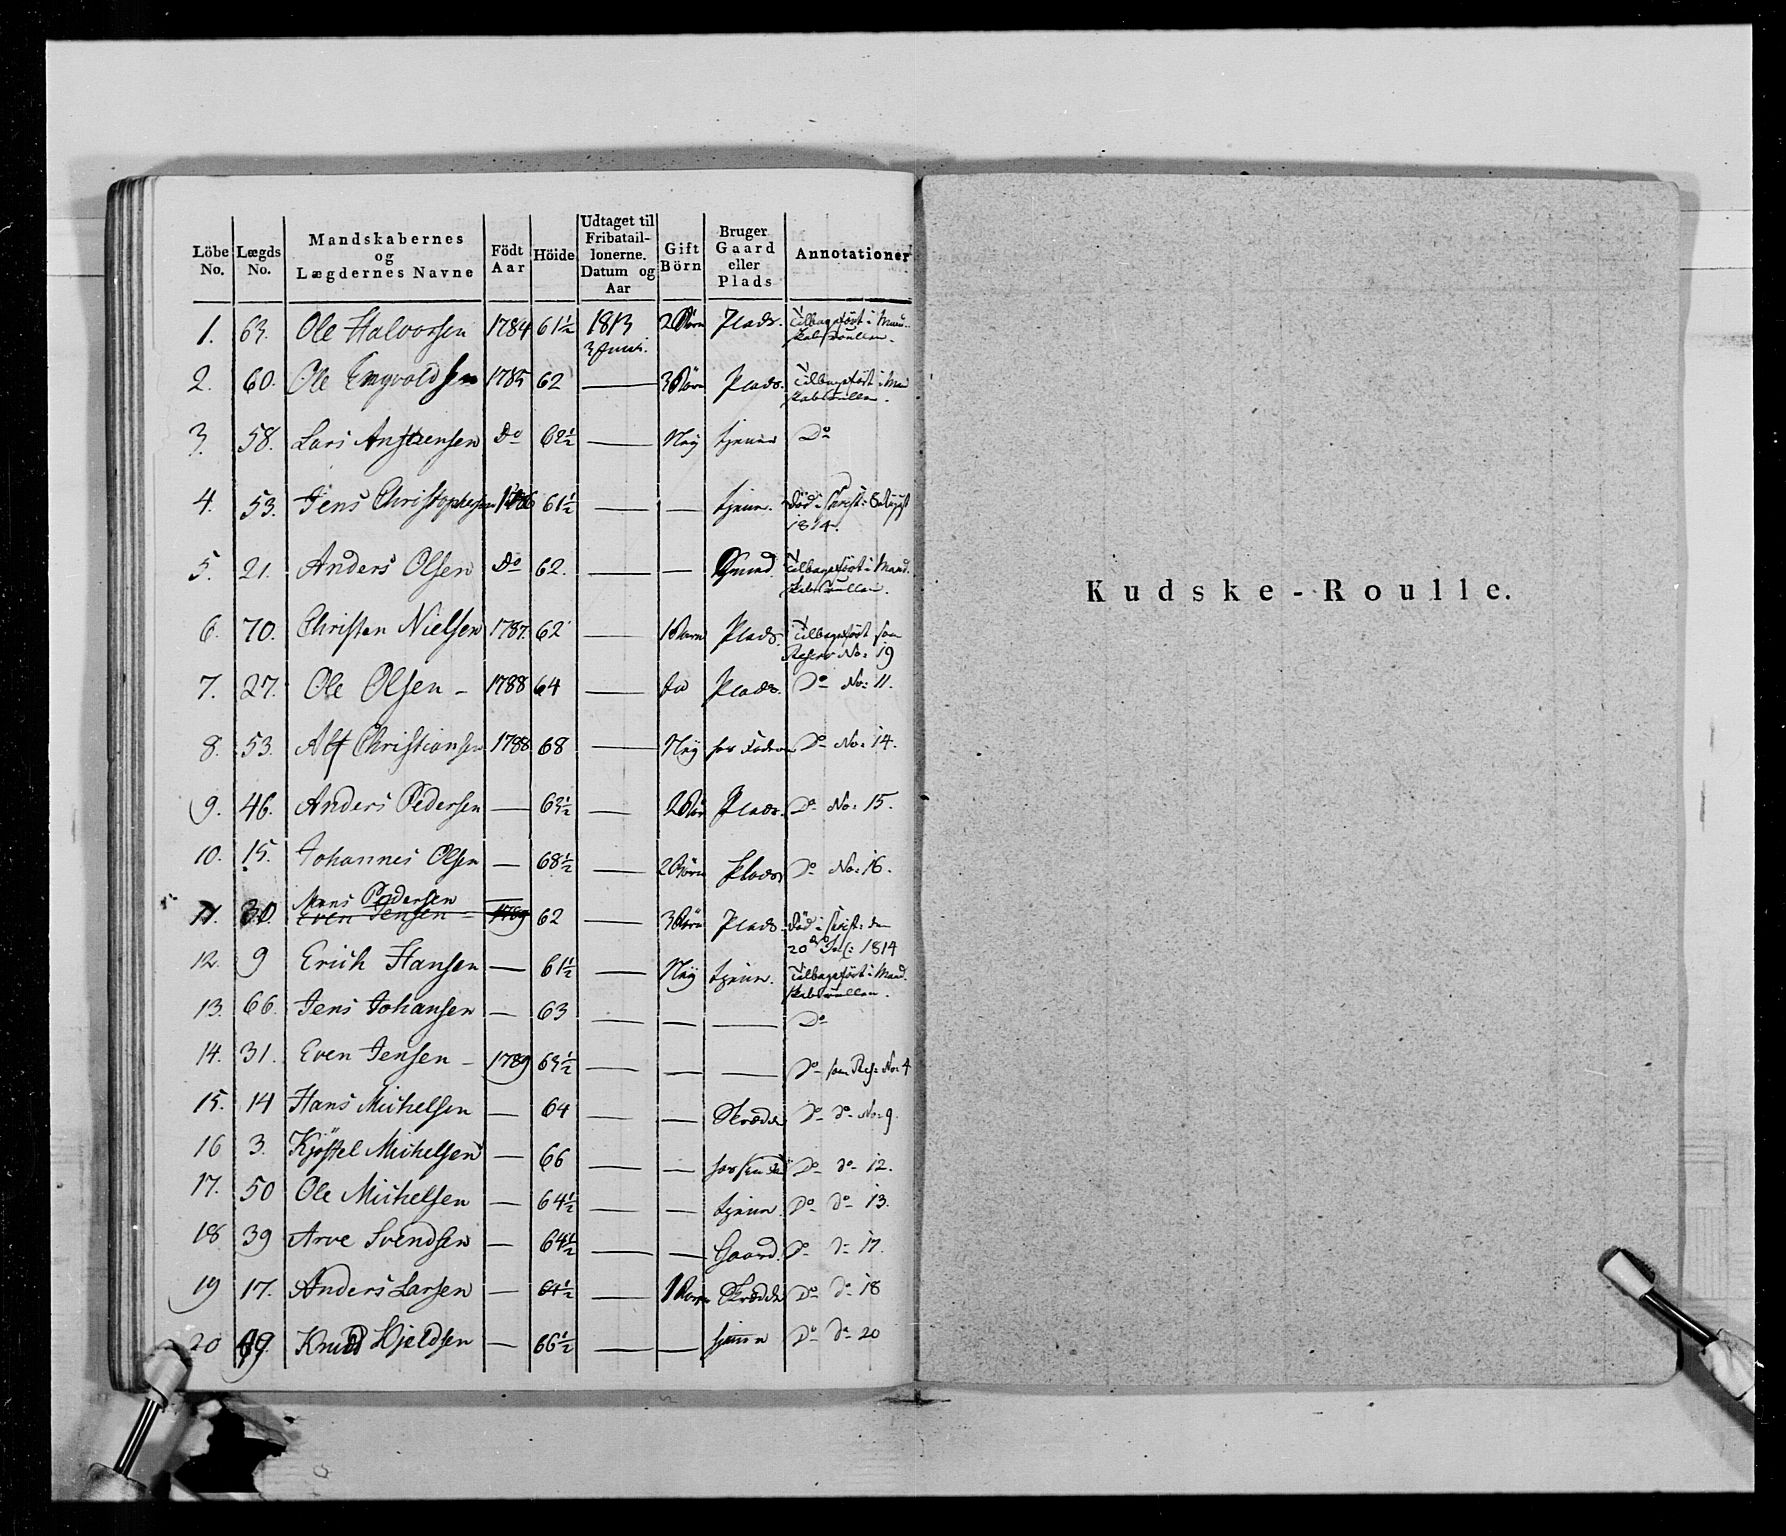 Löbe No. Lægds No. Mandskabernes og Lægdernes Navne Födt Aar Höide Udtaget til Fribataillonerne. Datum og Aar Gift Börn Bruger Gaard eller Plads Annotationer
1. 63. Ole Halvorsen 1784 61½ 1813 3 Juni. 2 Börn Plads. Tilbageført i Mandskabsroullen.
2. 60. Ole Engvoldsen 1785 62 — 3 Börn Plads. Tilbageført i Mandskabsroullen.
3. 58. Lars Anstensen Do 62½ — Nej tjener Do
4. 53. Jens Christophersen 1786 61½ — — tjener. Död i 1814.
5. 21. Anders Olsen Do 62. — — Tilbageført i Mandskabsroullen.
6. 70. Christen Nielsen 1787. 62 — 1 Barn Plads. Tilbageført som Reserv No: 19
7. 27. Ole Olsen – 1788 64 — Plads. Do No: 11.
8. 53. Alf Christiansen 1788 68 — Nej hos Faderen Do No: 14.
9. 46. Anders Pedersen — 63½ — 2 Bör Plads. Do No: 15.
10. 15. Johannes Olsen — 68½ — 2 Börn Plads Do No: 16.
11. 30. Hans Pedersen — 62 — 3 Börn Plads. Död i den 20de 1814
Even Jensen – 1789
12. 9 Erich Hansen — 61½ — Nej tjener. Tilbageført i Mandskabsroullen.
13. 66. Jens Johansen — 63 — — — Do
14. 31. Even Jensen – 1789 63½ — — — Do som Res: No: 4
15. 14 Hans Michelsen — 64 — — Skræder Do do No: 9.
16 3. Kjöstel Michelsen — 66 — — Do do 12.
17. 50 Ole Michelsen — 64½ — — tjener. Do do 13.
18 39 Arve Svendsen — 64½ — — Gaard. Do do 17.
19 17. Anders Larsen — 64½ — 1 Barn Skræder Do do 18
20 49. Knud Kjeldsen — 66½ — — tjener Do do 20
Kudske-Roulle.